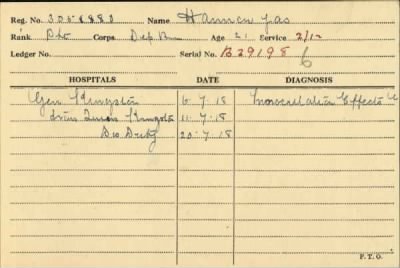 Reg. No. 3058883 Name Hannen Jas
Rank Pte Corps Dep Bn Age 21 Service 2/12
Ledger No. Serial No. B29198
6
HOSPITALS DATE DIAGNOSIS
Gen. Kingston 6-7-18 Innoculation Effects
Kingston 11-7-18
Do 20-7-18
P. T. O.